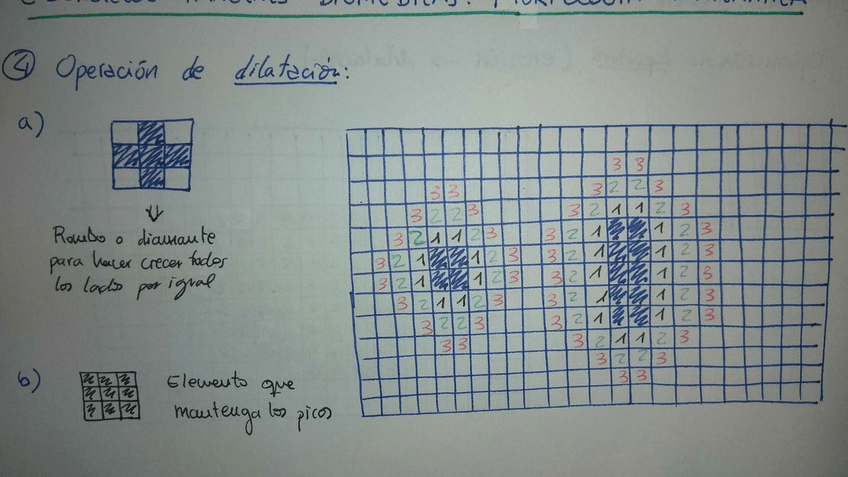 ④ Operación de dilatación:
a)
Rombo o diamante
para hacer crecer todos
los lados por igual
b)
Elemento que
mantenga los picos
3 3
3 3 3 2 2 3
3 2 2 3 3 2 1 1 2 3
3 2 1 1 2 3 3 2 1 1 2 3
3 2 1 1 2 3 3 2 1 1 2 3
3 2 1 1 2 3 3 2 1 1 2 3
3 2 1 1 2 3 3 2 1 1 2 3
3 2 2 3 3 2 1 1 2 3
3 3 3 2 1 1 2 3
3 2 2 3
3 3